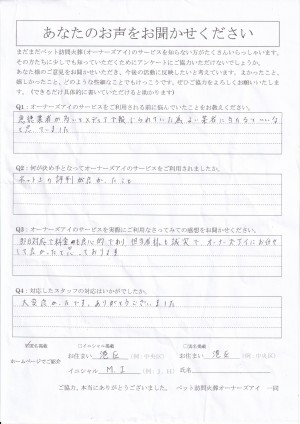 あなたのお声をお聞かせください
まだまだペット訪問火葬(オーナーズアイ)のサービスを知らない方がたくさんいらっしゃいます。
その方たちに少しでも知っていただくためにアンケートにご協力いただけないでしょうか。
あなた様のご意見をお聞かせいただき、今後の活動に反映したいと考えています。よかったこと、
嬉しかったこと、どのような些細なことでもけっこうです。ぜひご協力をよろしくお願いいたしま
す。(できるだけ具体的に書いていただけると助かります)
Q1：オーナーズアイのサービスをご利用される前に悩んでいたことをお教えください。
悪徳業者が多いとメディアで報じられていた為、よい業者に当たるといいな
と思っていました
Q2：何が決め手となってオーナーズアイのサービスをご利用されましたか。
ネット上の評判が良かったこと
Q3：オーナーズアイのサービスを実際にご利用なさってみての感想をお聞かせください。
即日対応で料金も良心的であり 担当者様も誠実で、オーナーズアイにお任せ
して良かったと思っております
Q4：対応したスタッフの対応はいかがでしたか。
大変良かったです。ありがとうございました
イニシャル掲載
ホームページでご紹介
お住まい 港区 (例:中央区)
お住まい 港区 (例:中央区)
イニシャル M.I
氏名
ご協力、本当にありがとうございました。 ペット訪問火葬オーナーズアイ 一同